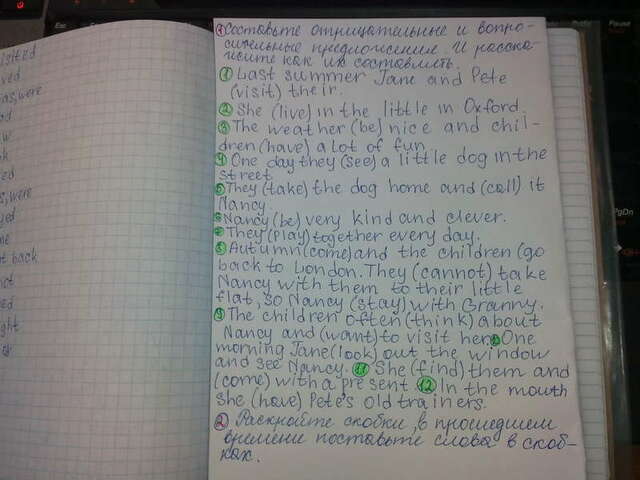 isited
ved
as,were
ed
w
k
ed
s,were
yed
me
t back
not
ed
ght
er
① Составьте отрицательные и вопро-
сительные предложение. И расска-
жите как их составлять.
① Last summer Jane and Pete
(visit) their.
② She (live) in the little in Oxford.
③ The weather (be) nice and chil-
dren (have) a lot of fun
④ One day they (see) a little dog in the
street.
⑤ They (take) the dog home and (call) it
Nancy.
⑥ Nancy (be) very kind and clever.
⑦ They (play) together every day.
⑧ Autumn (come) and the children (go
back to London. They (cannot) take
Nancy with them to their little
flat, so Nancy (stay) with Granny.
⑨ The children often (think) about
Nancy and (want) to visit her. ⑩ One
morning Jane (look) out the window
and see Nancy. ⑪ She (find) them and
(come) with a present ⑫ In the mouth
she (have) Pete's old trainers.
② Раскройте скобки, в прошедшем
времени поставьте слова в скоб-
ках.
Esc
PgDn